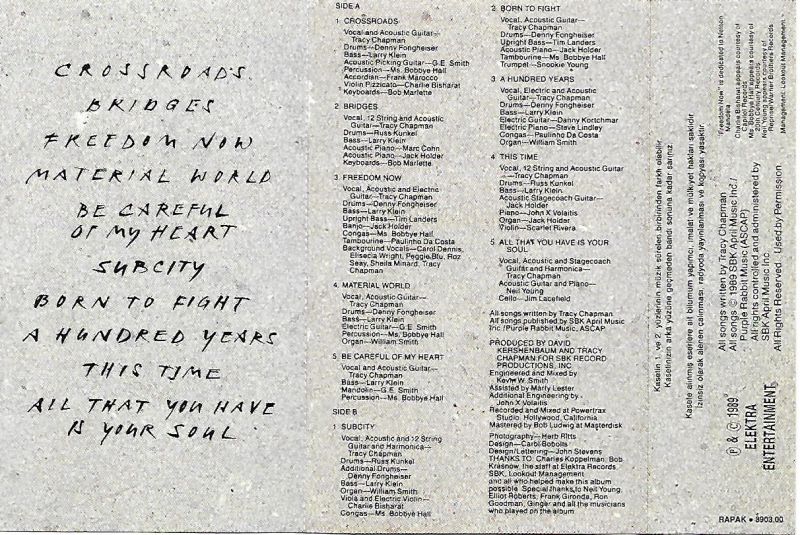 CROSSROADS
BRIDGES
FREEDOM NOW
MATERIAL WORLD
BE CAREFUL
OF MY HEART
SUBCITY
BORN TO FIGHT
A HUNDRED YEARS
THIS TIME
ALL THAT YOU HAVE
IS YOUR SOUL
SIDE A
1 CROSSROADS
Vocal and Acoustic Guitar—
Tracy Chapman
Drums—Denny Fongheiser
Bass—Larry Klein
Acoustic Picking Guitar—G.E. Smith
Percussion—Ms. Bobbye Hall
Accordian—Frank Marocco
Violin Pizzicato—Charlie Bisharat
Keyboards—Bob Marlette
2. BRIDGES
Vocal, 12 String and Acoustic
Guitar—Tracy Chapman
Drums—Russ Kunkel
Bass—Larry Klein
Acoustic Piano—Marc Cohn
Acoustic Piano—Jack Holder
Keyboards—Bob Marlette
3. FREEDOM NOW
Vocal, Acoustic and Electric
Guitar—Tracy Chapman
Drums—Denny Fongheiser
Bass—Larry Klein
Upright Bass—Tim Landers
Banjo—Jack Holder
Congas—Ms. Bobbye Hall
Tambourine—Paulinho Da Costa
Background Vocals—Carol Dennis,
Elisecia Wright, Peggie Blu, Roz
Seay, Sheila Minard, Tracy
Chapman
4. MATERIAL WORLD
Vocal, Acoustic Guitar—
Tracy Chapman
Drums—Denny Fongheiser
Bass—Larry Klein
Electric Guitar—G.E. Smith
Percussion—Ms. Bobbye Hall
Organ—William Smith
5. BE CAREFUL OF MY HEART
Vocal and Acoustic Guitar—
Tracy Chapman
Bass—Larry Klein
Mandolin—G.E. Smith
Percussion—Ms. Bobbye Hall
SIDE B
1 SUBCITY
Vocal, Acoustic and 12 String
Guitar and Harmonica—
Tracy Chapman
Drums—Russ Kunkel
Additional Drums—
Denny Fongheiser
Bass—Larry Klein
Organ—William Smith
Viola and Electric Violin—
Charlie Bisharat
Congas—Ms. Bobbye Hall
2. BORN TO FIGHT
Vocal, Acoustic Guitar—
Tracy Chapman
Drums—Denny Fongheiser
Upright Bass—Tim Landers
Acoustic Piano—Jack Holder
Tambourine—Ms. Bobbye Hall
Trumpet—Snookie Young
3. A HUNDRED YEARS
Vocal, Electric and Acoustic
Guitar—Tracy Chapman
Drums—Denny Fongheiser
Bass—Larry Klein
Electric Guitar—Danny Kortchmar
Electric Piano—Steve Lindley
Congas—Paulinho Da Costa
Organ—William Smith
4. THIS TIME
Vocal, 12 String and Acoustic Guitar
—Tracy Chapman
Drums—Russ Kunkel
Bass—Larry Klein
Acoustic Stagecoach Guitar—
Jack Holder
Piano—John X Volaitis
Organ—Jack Holder
Violin—Scarlet Rivera
5. ALL THAT YOU HAVE IS YOUR
SOUL
Vocal, Acoustic and Stagecoach
Guitar and Harmonica—
Tracy Chapman
Acoustic Guitar and Piano—
Neil Young
Cello—Jim Lacefield
All songs written by Tracy Chapman
All songs published by SBK April Music
Inc./Purple Rabbit Music, ASCAP
PRODUCED BY DAVID
KERSHENBAUM AND TRACY
CHAPMAN FOR SBK RECORD
PRODUCTIONS, INC
Engineered and Mixed by
Kevin W. Smith
Assisted by Marty Lester
Additional Engineering by
John X Volaitis
Recorded and Mixed at Powertrax
Studio, Hollywood, California
Mastered by Bob Ludwig at Masterdisk
Photography—Herb Ritts
Design—Carol Bobolts
Design/Lettering—John Stevens
THANKS TO: Charles Koppelman, Bob
Krasnow, the staff at Elektra Records,
SBK, Lookout Management
and all who helped make this album
possible. Special thanks to Neil Young,
Elliot Roberts, Frank Gironda, Ron
Goodman, Ginger and all the musicians
who played on the album
Kasetin 1. ve 2. yüzlerinin müzik süreleri birbirinden farklı olabilir.
Kasetinizin arka yüzüne geçmeden bandı sonuna kadar sarınız
Kasete alınmış eserlere ait bilumum yapımcı, imalat ve mülkiyet hakları saklıdır.
İzinsiz olarak alenen çalınması, radyoda yayınlanması ve kopyası yasaktır.
"Freedom Now" is dedicated to Nelson
Mandela
Charlie Bisharat appears courtesy of
Capitol Records
Ms. Bobbye Hall appears courtesy of
20th Century Records
Neil Young appears courtesy of
Reprise/Warner Brothers Records
Management: Lookout Management
All songs written by Tracy Chapman
All songs © 1989 SBK April Music Inc./
Purple Rabbit Music (ASCAP)
All rights controlled and administered by
SBK April Music Inc.
All Rights Reserved. Used by Permission.
℗ & © 1989
ELEKTRA
ENTERTAINMENT
RAPAK • 8903.00